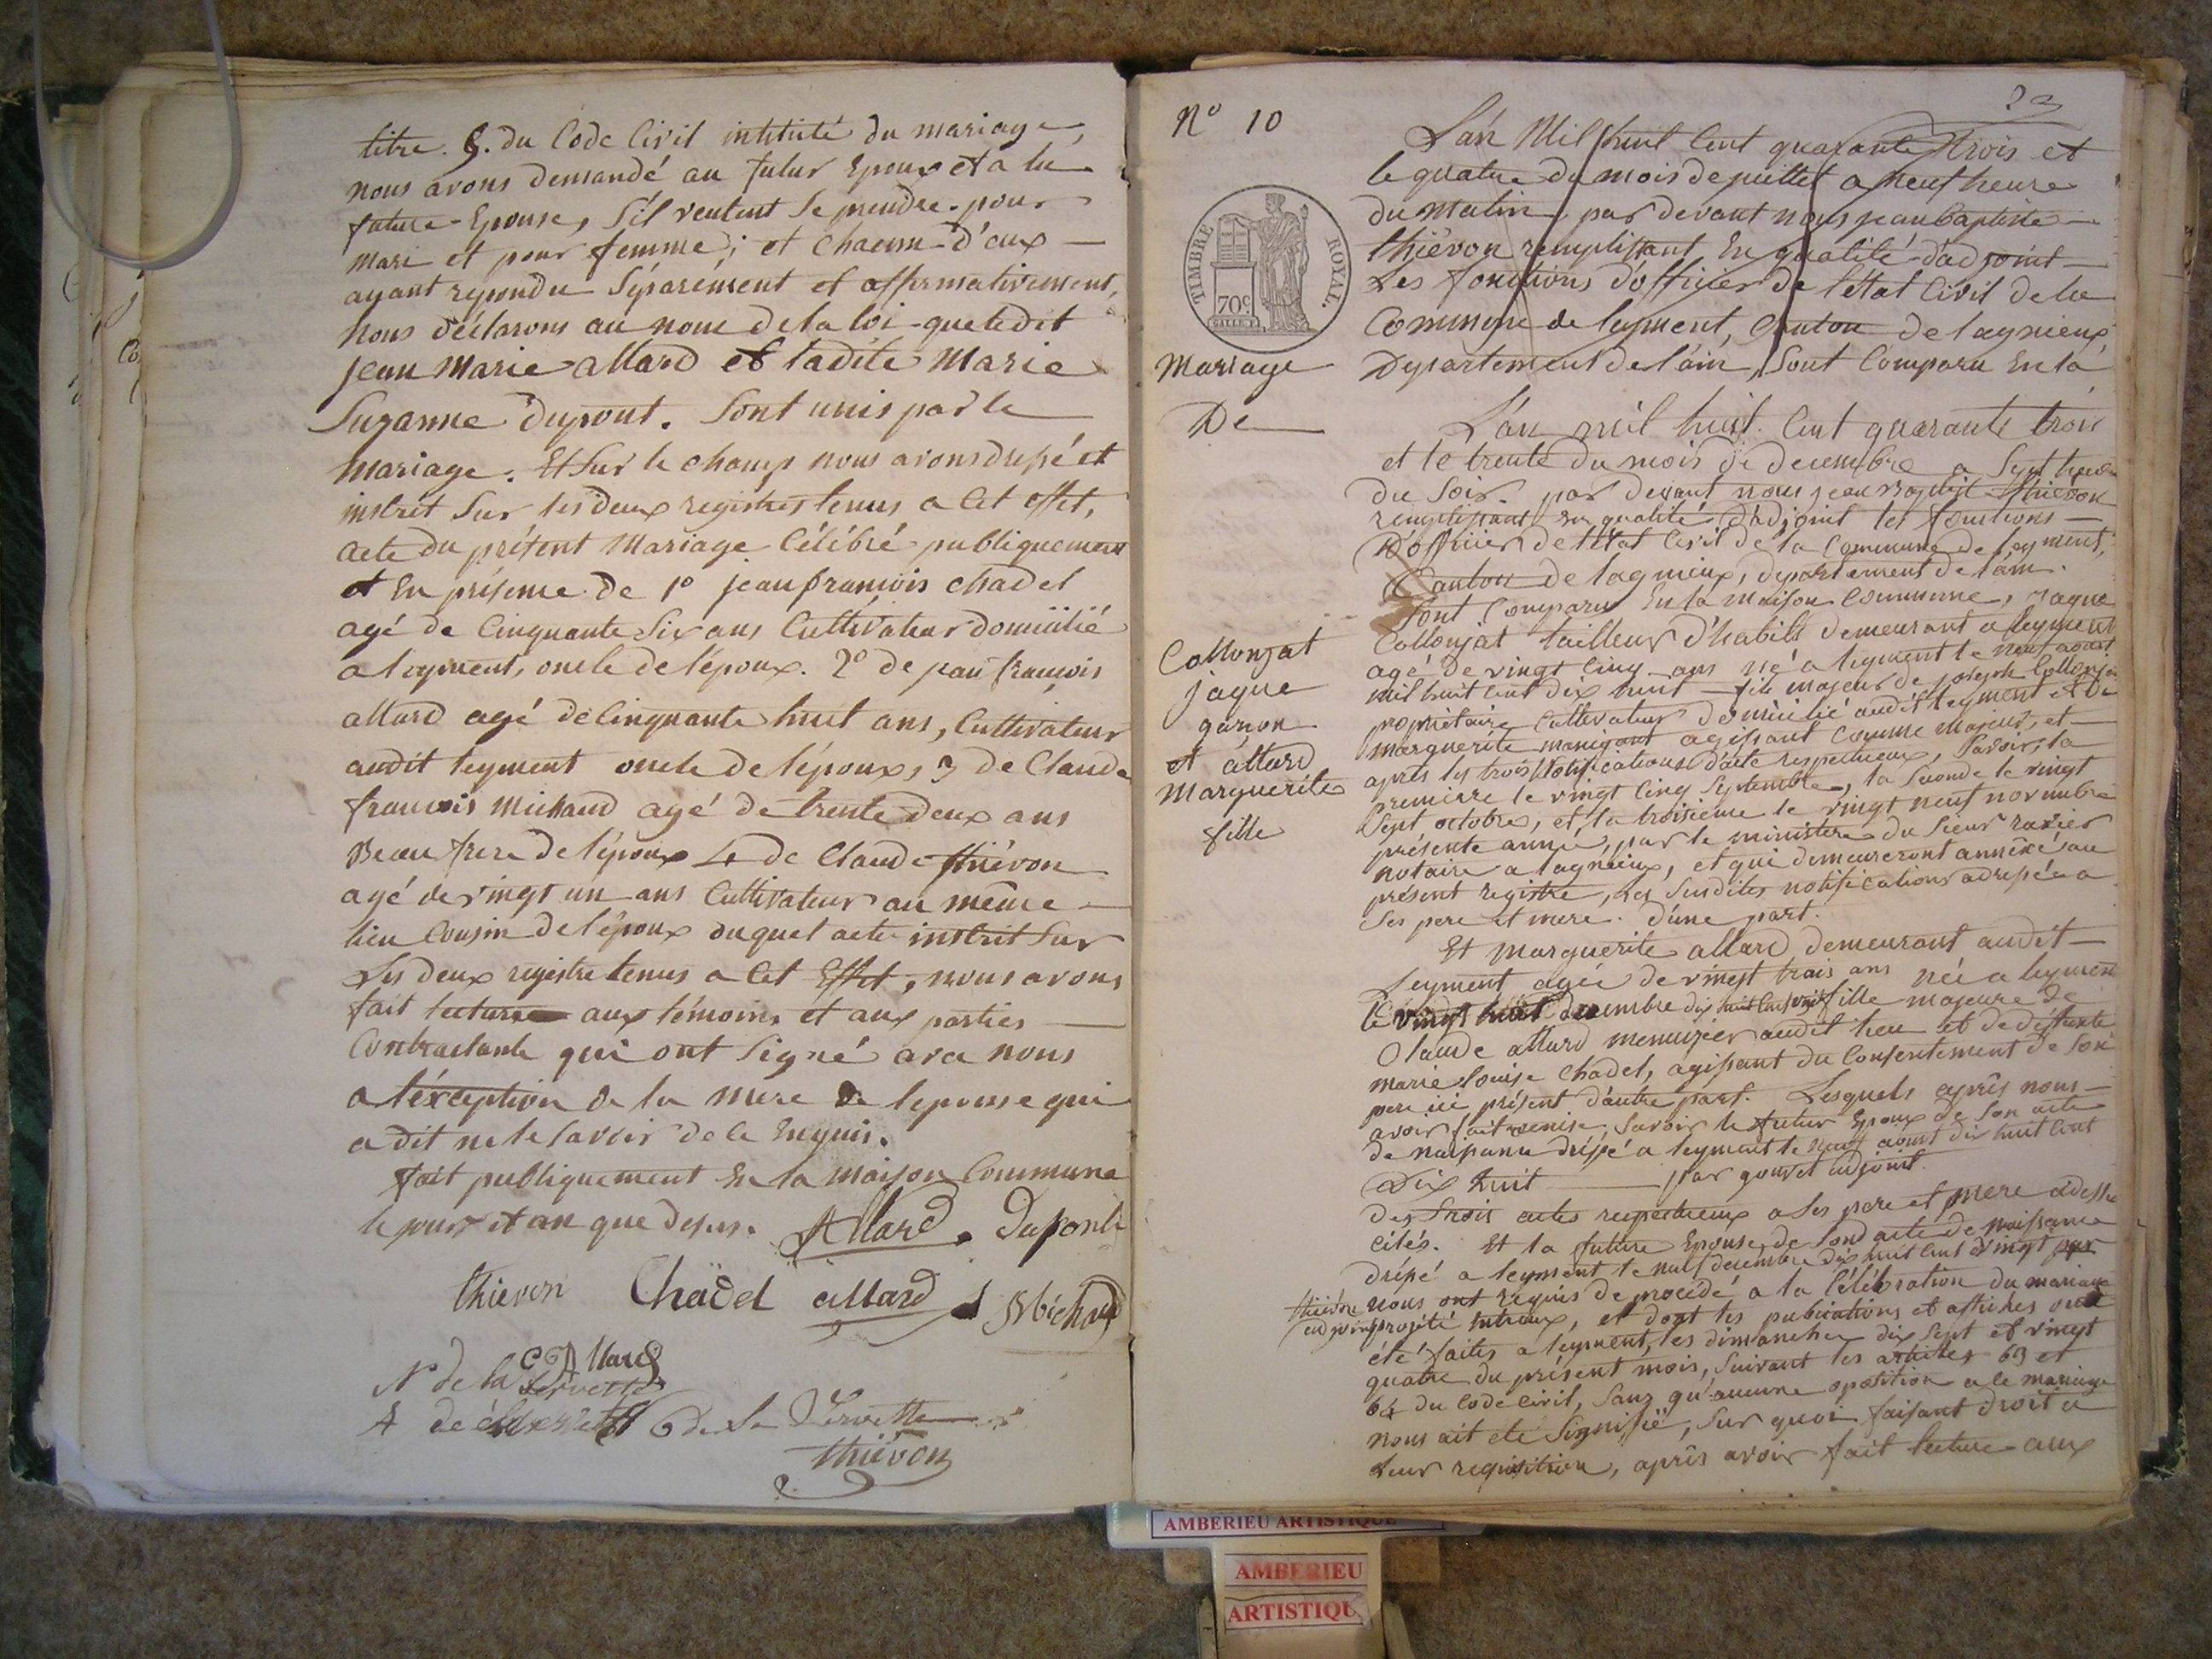 titre. 5. du Code Civil intitulé du mariage,
nous avons demandé au futur Epoux et a la
future Epouse, S'il veulent Se prendre pour
mari et pour femme; et Chacun d'eux
ayant répondu Séparément et affirmativement,
nous déclarons au nom de la loi que ledit
jean Marie allard et ladite Marie
Suzanne dupont. Sont unis par le
mariage. Et Sur le champ nous avons drepé et
instrit Sur les deux registres tenus a Cet effet,
acte du présent Mariage Célébré publiquement
et En présence de 1º jean francois chadel
agé de Cinquante Six ans Cultivateur domicilié
a leyment, oncle de l'époux. 2º de jean francois
allard agé de Cinquante huit ans, Cultivateur
audit leyment oncle de l'époux, 3 de Claude
francois Michaud agé de trente deux ans
Beau frere de l'époux 4 de Claude thiévon
agé de vingt un ans Cultivateur au même
lieu Cousin de l'époux duquel acte instrit Sur
Les deux registre tenus a Cet Effet, nous avons
fait lecture aux témoins et aux parties
Contractante qui ont Signé avec nous
a l'éxception de la mere de l'epouse qui
a dit ne le Savoir de ce Enquis.
fait publiquement En la Maison Commune
le jour et an que desus. Allard. Dupont
thievon Chadel allard Michaud
N de la Servette C Allard
A de de la Servette
thiévon
23
Nº 10
L'an Mil huit Cent quarante trois et
le quatre du mois de juillet a neuf heure
du Matin par devant nous jean Baptiste
thiévon remplissant En qualité d'adjoint
Les fonctions d'officier de l'état Civil de la
Commune de leyment, Canton de lagnieux,
Departement de l'ain, Sont Comparu En la
TIMBRE ROYAL.
70c
Mariage
De
Collonjat
jaque
garson
et allard
Marguerite
fille
L'an mil huit Cent quarante trois
et le trente du mois de decembre a Sept heure
du Soir. par devant nous jean Baptist thiévon
remplissant En qualité d'adjoint les fonctions
D'officier de l'état Civil de la Commune de leyment,
Canton de lagnieux, departement de l'ain.
Sont Comparu En la maison Commune, jaque
Collonjat tailleur d'habits demeurant a leyment
agé de vingt Cinq ans né a leyment le neuf aoust
mil huit Cent dix huit fils majeur de joseph Collonjat
propriétaire Cultivateur domicilié audit leyment et de
marguerite manigant agissant Comme Majeur, et
après les trois Notifications d'acte respectueux, Savoir, la
premiere le vingt Cinq Septembre, la Seconde le vingt
Sept octobre, et la troisième le vingt neuf novembre
présente année, par le ministere du Sieur ravier
notaire a lagnieux, et qui demeureront annéxé au
présent registre, Les Susdites notifications adrepée a
Ses pere et mere. d'une part.
Et Marguerite allard demeurant audit
Leyment agée de vingt trois ans née a leyment
le vingt huit decembre dix huit Cent vingt fille majeure de
Claude allard menuizier audit lieu et de défunte
marie louise Chadel, agissant du Consentement de Son
pere ici présent d'autre part. Lesquels après nous
avoir fait remise, Savoir le futur Epoux de Son acte
de naissance drépé a leyment le neuf aoust dix huit Cent
Dix huit par adjoint.
des trois actes respectueux a Ses pere et mere
cités. Et la future Epouse, de Son acte de naissance
drépé a leyment le decembre dix huit Cent vingt par
thiévon adjoint
nous ont requis de procédé a la Célébration du mariage
projété entreux, et dont les publications et affiches ont
été faites a leyment, les dimanches dix Sept et vingt
quatre du présent mois, Suivant les articles 63 et
64 du Code Civil, Sans qu'aucune oposition a le mariage
nous ait été Signifié, Sur quoi faisant droit a
Leur requisition, après avoir fait lecture aux
AMBERIEU ARTISTIQUE
AMBERIEU
ARTISTIQU